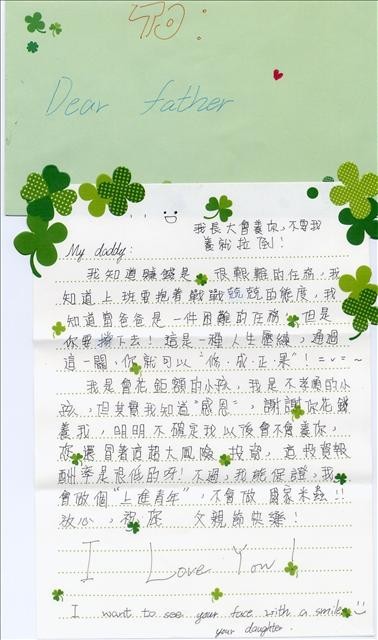 To:
Dear father
我長大會養你,不要我
養就拉倒!
My daddy:
我知道賺錢是一很艱難的任務,我
知道上班要抱著戰戰兢兢的態度,我
知道當爸爸是一件困難的任務,但是
你要撐下去!這是一種人生歷練,通過
這一關,你就可以"修成正果"!=v=~
我是會花鉅額的小孩,我是不孝順的小
孩,但其實我知道"感恩",謝謝你花錢
養我,明明不確定我以後會不會養你,
您還冒著這超大風險投資,這投資報
酬率是很低的呀!不過,我能保證,我
會做個"上進青年",不會做國家米蟲!!
放心,祝您 父親節快樂!
I Love You!
I want to see your face with a smile
your daughter.